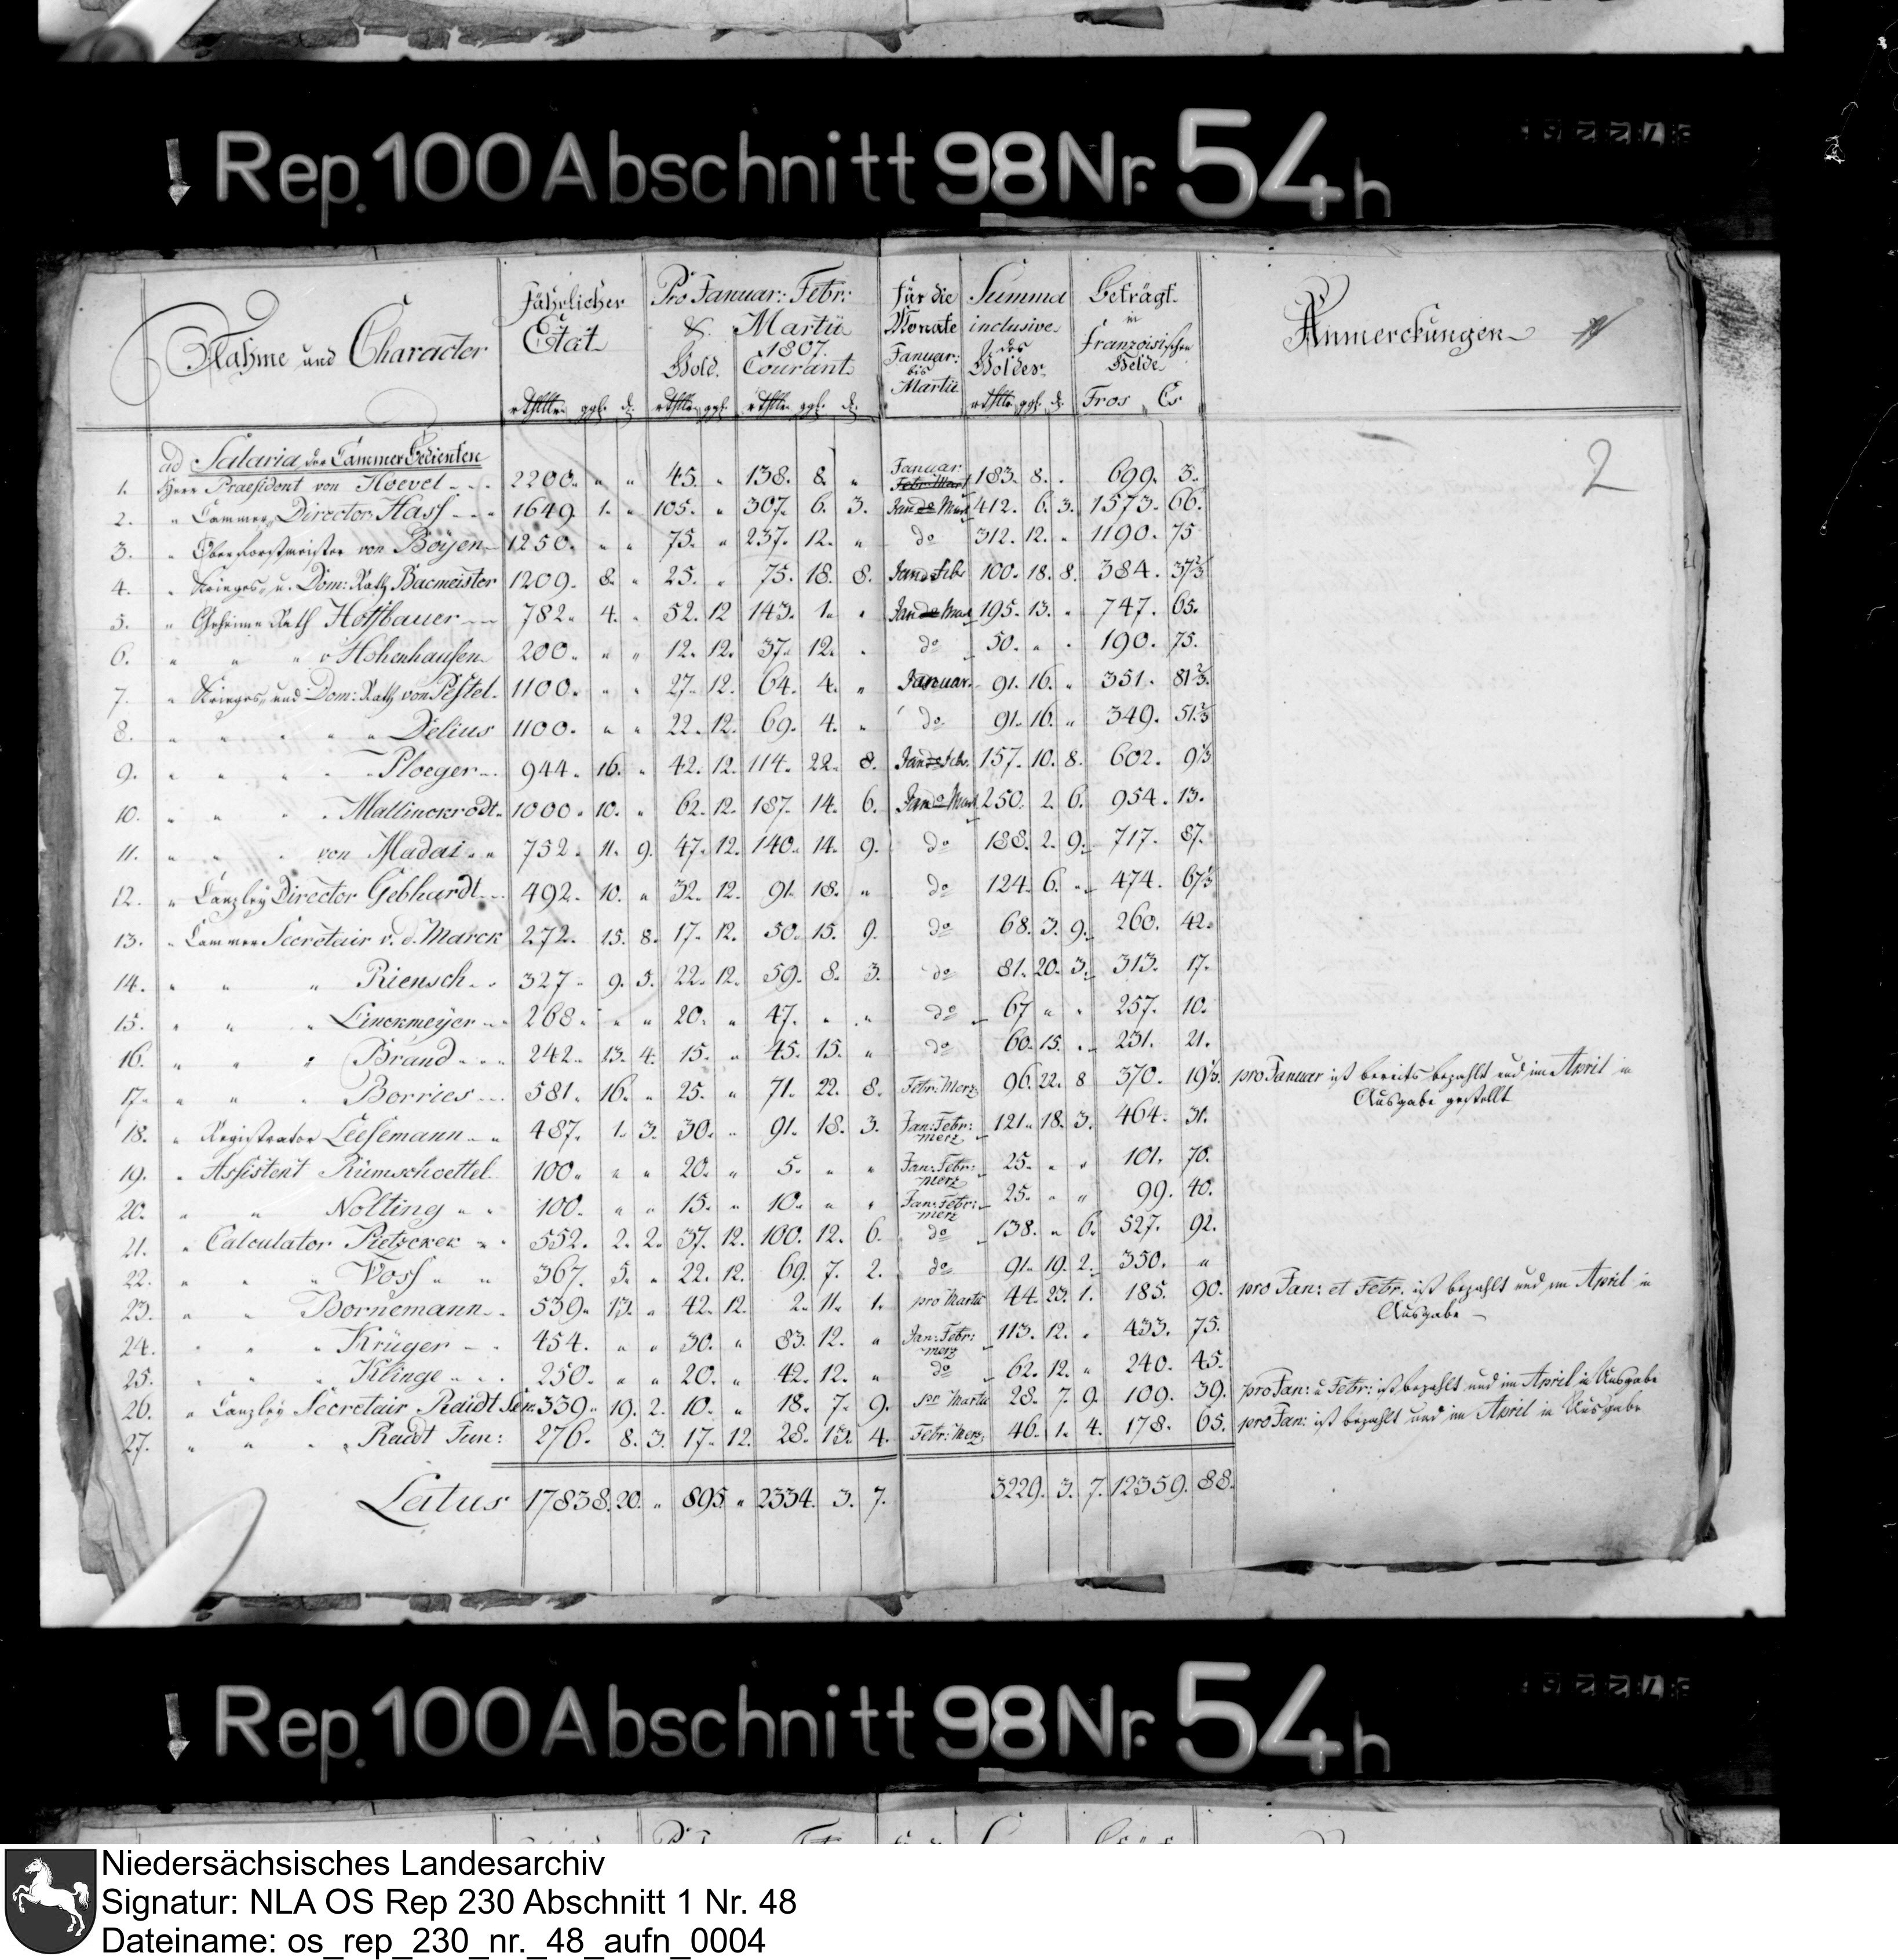 Rep. 100 Abschnitt 98 Nr. 54 h
Nahme und Character
Jährlicher Etat
rthlr. ggl. d.
Pro Januar: Febr: & Martii 1807.
Gold. Courant.
rthlr. ggl. rthlr. ggl. d.
für die Monate Januar: bis Martii
Summa inclusive des Goldes.
rthlr. ggl. d.
beträgt in französischen Gelde
Frcs Cs.
Anmerckungen
2
ad Salaria der Cammer Bedienten
1. Herr Praesident von Hoevel 2200. " " 45. " 138. 8. " Januar 183. 8. . 699. 3.
2. " Cammer Director Hass 1649 1. " 105. " 307. 6. 3. Jan do Mart 412. 6. 3. 1573. 66.
3. " Oberforstmeister von Boÿen 1250. " " 75. " 237. 12. " do 312. 12. " 1190. 75
4. " Krieges u. Dom: Rath Bacmeister 1209. 8. " 25. " 75. 18. 8. Jan & Febr 100. 18. 8. 384. 37 2/3
5. " Geheime Rath Hoffbauer 782. 4. " 52. 12 143. 1. " Jan do Mart 195. 13. " 747. 65.
6. " " " v Hohenhausen 200. " " 12. 12. 37. 12. . do 50. " . 190. 75.
7. " Krieges und Dom: Rath von Pestel. 1100. " " 27. 12. 64. 4. " Januar. 91. 16. " 351. 81 2/3.
8. " " " " " Delius 1100. " " 22. 12. 69. 4. " do 91. 16. " 349. 51 2/3
9. " " " " Ploeger 944. 16. " 42. 12. 114. 22. 8. Jan & Febr. 157. 10. 8. 602. 9 1/3
10. " " " " Mallinckrodt 1000. 10. " 62. 12. 187. 14. 6. Jan do Mart 250. 2. 6. 954. 13.
11. " " " von Madai 752. 11. 9. 47. 12. 140. 14. 9. do 188. 2. 9. 717. 87.
12. " Canzley Director Gebhardt 492. 10. " 32. 12. 91. 18. " do 124. 6. " 474. 67 1/2
13. " Cammer Secretair v. d. Marck 272. 15. 8. 17. 12. 50. 15. 9. do 68. 3. 9. 260. 42.
14. " " " Riensch 327. 9. 5. 22. 12. 59. 8. 3. do 81. 20. 3. 313. 17.
15. " " " Linckmeÿer 268. " " 20. " 47. " " do 67 " " 257. 10.
16. " " " Brand 242. 13. 4. 15. " 45. 15. " do 60. 15. . 231. 21.
17. " " " Borries 581. 16. " 25. " 71. 22. 8. Febr: Merz 96. 22. 8 370. 19 1/3. pro Januar ist bereits bezahlt und im April in
Ausgabe gestellt
18. " Registrator Leesemann 487. 1. 3. 30. " 91. 18. 3. Jan: Febr: merz 121. 18. 3. 464. 31.
19. " Assistent Rümschoettel 100. " " 20. " 5. " " Jan: Febr: merz 25. " " 101. 70.
20. " " Nolting 100. " " 15. " 10. " " Jan: Febr: merz 25. " " 99. 40.
21. " Calculator Pietzcker 552. 2. 2. 37. 12. 100. 12. 6. do 138. " 6. 527. 92.
22. " " " Voss 367. 5. " 22. 12. 69. 7. 2. do 91. 19. 2. 350. "
23. " " Bornemann 539. 13. " 42. 12. 2. 11. 1. pro Martii 44. 23. 1. 185. 90. pro Jan: et Febr. ist bezahlt und im April in
Ausgabe
24. " " " Krüger 454. " " 30. " 83. 12. " Jan: Febr: merz 113. 12. " 433. 75.
25. " " " Klinge 250. " " 20. " 42. 12. " do 62. 12. " 240. 45.
26. " Canzley Secretair Raidt Sen: 339. 19. 2. 10. " 18. 7. 9. pro Martii 28. 7. 9. 109. 39. pro Jan: u Febr: ist bezahlt und im April in Ausgabe
27. " " " Raidt Jun: 276. 8. 3. 17. 12. 28. 13. 4. Febr: Merz 46. 1. 4. 178. 65. pro Jan: ist bezahlt und im April in Ausgabe
Latus 17838. 20. " 895 " 2334. 3. 7. 3229. 3. 7. 12359. 88.
Rep. 100 Abschnitt 98 Nr. 54 h
Niedersächsisches Landesarchiv
Signatur: NLA OS Rep 230 Abschnitt 1 Nr. 48
Dateiname: os_rep_230_nr._48_aufn_0004